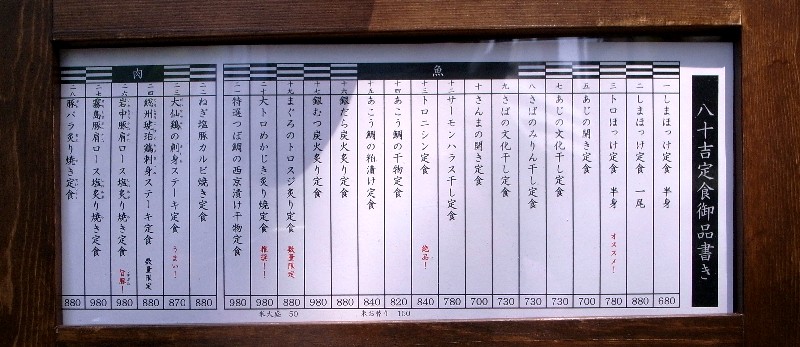 八十吉定食御品書き
魚
一 しまほっけ定食 半身 680
二 しまほっけ定食 一尾 880
三 トロほっけ定食 半身 オススメ! 780
四 あじの開き定食 700
五 あじの開き定食 700
七 あじの文化干し定食 730
八 さばのみりん干し定食 730
九 さばの文化干し定食 730
十 さんまの開き定食 700
十二 サーモンハラス干し定食 780
十三 トロニシン定食 絶品! 840
十四 あこう鯛の干物定食 820
十五 あこう鯛の粕漬け定食 840
十六 銀だら炭火炙り定食 880
十七 銀むつ炭火炙り定食 980
十九 まぐろのトロスジ炙り定食 数量限定 880
二十 大トロめかじき炙り焼定食 推奨!! 980
二一 特選つぼ鯛の西京漬け干物定食 980
肉
二二 ねぎ塩豚カルビ焼き定食 880
二三 大仙鶏の刺身ステーキ定食 うまい! 870
二四 総州琥珀鶏刺身ステーキ定食 数量限定 880
二六 岩中豚肩ロース塩炙り焼き定食 旨豚! 980
二七 霧島豚肩ロース塩炙り焼き定食 980
二八 豚バラ炙り焼き定食 880
米大盛 50
米お替り 100